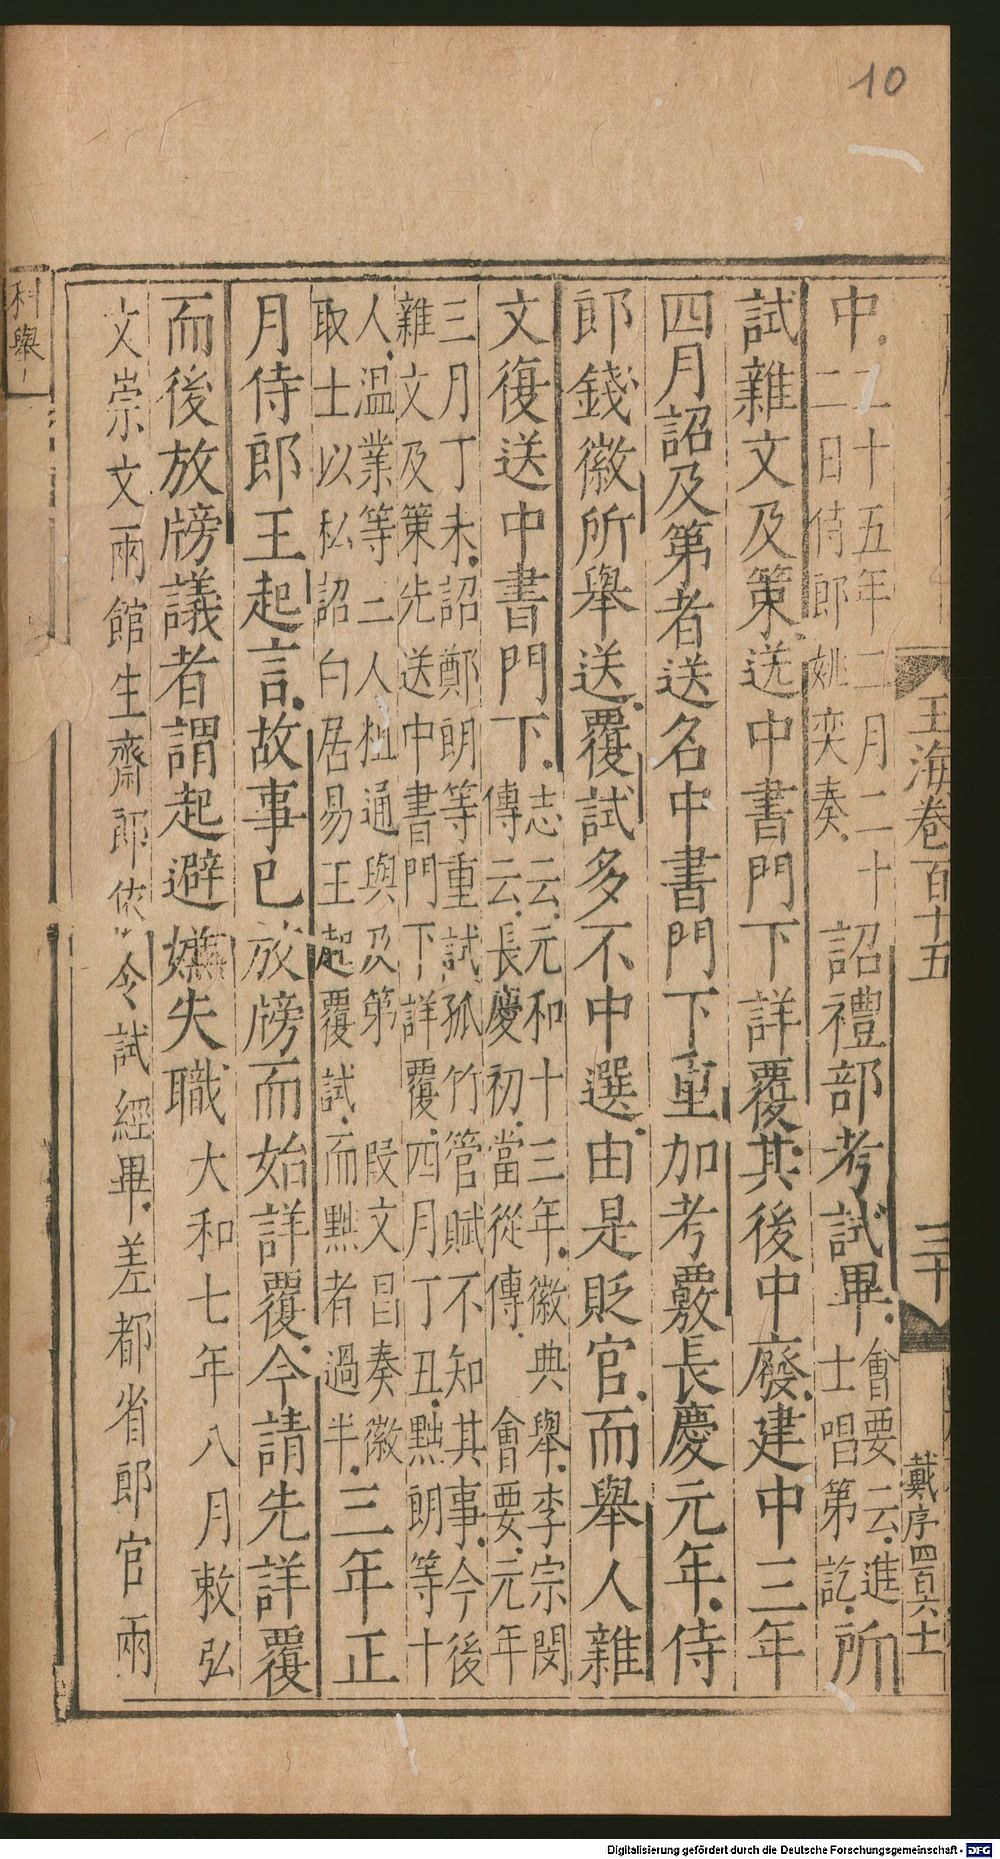 10
玉海卷百十五
三十
戴序四百六十
中二十五年二月二十
二日侍郎姚奕奏詔禮部考試畢會要云進
士唱第訖所
試雜文及策送中書門下詳覆其後中廢建中三年
四月詔及第者送名中書門下重加考覈長慶元年侍
郎錢徽所舉送覆試多不中選由是貶官而舉人雜
文復送中書門下志云元和十三年徽典舉李宗閔
傳云長慶初當從傳會要元年
三月丁未詔鄭朗等重試孤竹管賦不知其事今後
雜文及策先送中書門下詳覆四月丁丑黜朗等十
人溫業等二人植通與及第段文昌奏徽
取士以私詔白居易王起覆試而黜者過半三年正
月侍郎王起言故事已放牓而始詳覆今請先詳覆
而後放牓議者謂起避嫌失職大和七年八月敕弘
文崇文兩館生齋郎依令試經畢差都省郎官兩
科舉
Digitalisierung gefördert durch die Deutsche Forschungsgemeinschaft - DFG